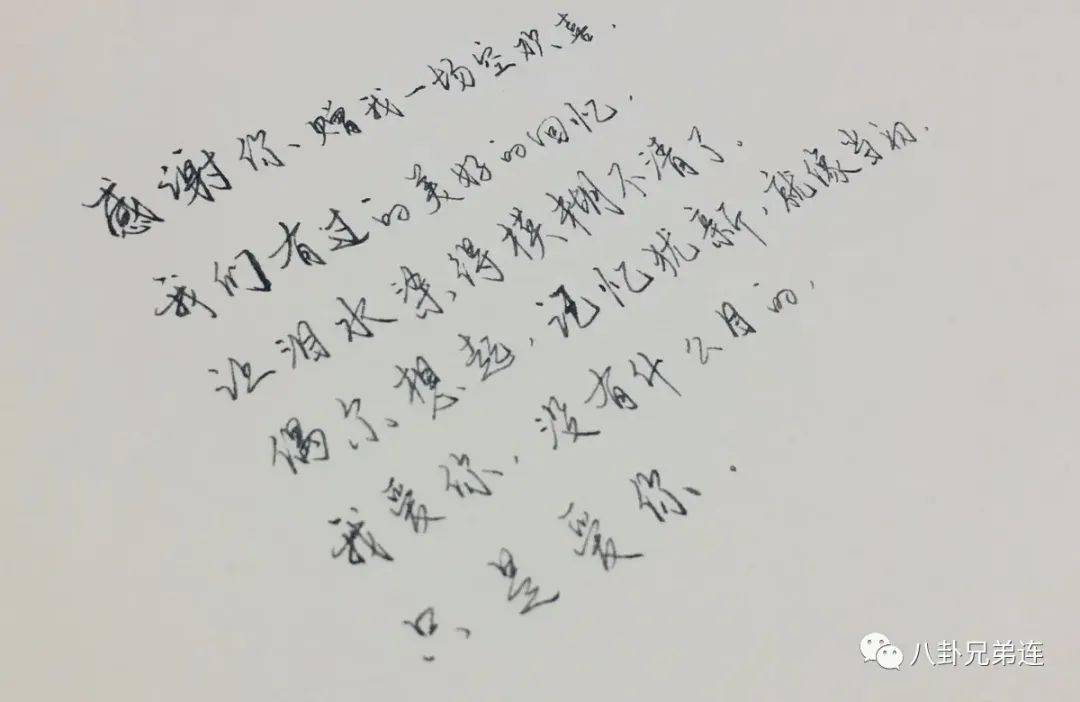 感谢你、赠我一场空欢喜.
我们有过的美好的回忆.
让泪水染得模糊不清了.
偶尔想起,记忆犹新,就像当初.
我爱你,没有什么目的.
只是爱你.
八卦兄弟连